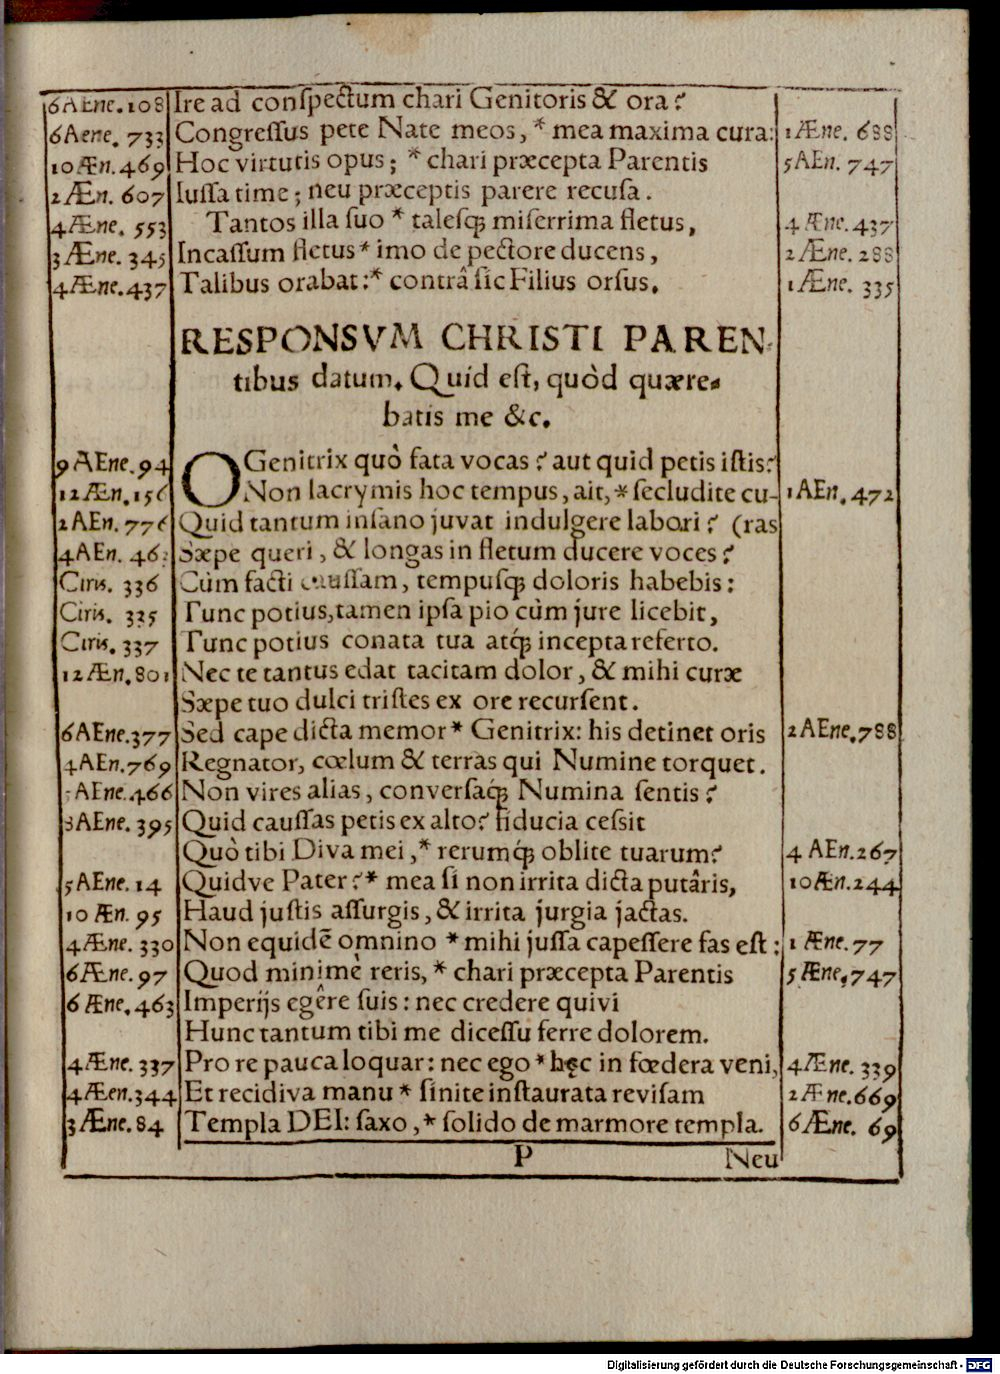 6AEne.108 Ire ad conſpectum chari Genitoris & ora?
6Aene. 733 Congreſſus pete Nate meos, * mea maxima cura: 1Æne. 688
10Æn. 469 Hoc virtutis opus; * chari præcepta Parentis 5AEn. 747
2Æn. 607 Iuſſa time; neu præceptis parere recuſa.
4Æne. 553 Tantos illa ſuo * taleſq́ꝫ miſerrima fletus, 4Æne. 437
3Æne. 345 Incaſſum fletus * imo de pectore ducens, 2Æne. 288
4Æne. 437 Talibus orabat: * contrâ ſic Filius orſus. 1Æne. 335
RESPONSVM CHRISTI PAREN-
tibus datum. Quid eſt, quòd quære-
batis me &c.
9AEne. 94 O Genitrix quò fata vocas? aut quid petis iſtis?
12Æn. 156 Non lacrymis hoc tempus, ait, * ſecludite cu- 1AEn. 472
2AEn. 776 Quid tantum inſano juvat indulgere labori? (ras
4AEn. 46 Sæpe queri, & longas in fletum ducere voces?
Ciris. 336 Cùm facti cauſſam, tempuſq́ꝫ doloris habebis:
Ciris. 335 Tunc potius, tamen ipſa pio cùm jure licebit,
Ciris. 337 Tunc potius conata tua atq́ꝫ incepta referto.
12Æn. 801 Nec te tantus edat tacitam dolor, & mihi curæ
Sæpe tuo dulci triſtes ex ore recurſent.
6AEne. 377 Sed cape dicta memor * Genitrix: his detinet oris 2AEne. 788
4AEn. 769 Regnator, cœlum & terras qui Numine torquet.
5AEne. 466 Non vires alias, converſaq́ꝫ Numina ſentis?
8AEne. 395 Quid cauſſas petis ex alto? fiducia ceſsit
Quò tibi Diva mei, * rerumq́ꝫ oblite tuarum? 4 AEn. 267
5AEne. 14 Quidve Pater? * mea ſi non irrita dicta putâris, 10Æn. 244
10 Æn. 95 Haud juſtis aſſurgis, & irrita jurgia jactas.
4Æne. 330 Non equidẽ omnino * mihi juſſa capeſſere fas eſt: 1 Æne. 77
6Æne. 97 Quod minimè reris, * chari præcepta Parentis 5Æne. 747
6 Æne. 463 Imperijs egêre ſuis: nec credere quivi
Hunc tantum tibi me diceſſu ferre dolorem.
4Æne. 337 Pro re pauca loquar: nec ego * hęc in fœdera veni, 4Æne. 339
4Æen. 344 Et recidiva manu * ſinite inſtaurata reviſam 2Æne. 669
3Æne. 84 Templa DEI: ſaxo, * ſolido de marmore templa. 6Æne. 69
P Neu
Digitalisierung gefördert durch die Deutsche Forschungsgemeinschaft - DFG